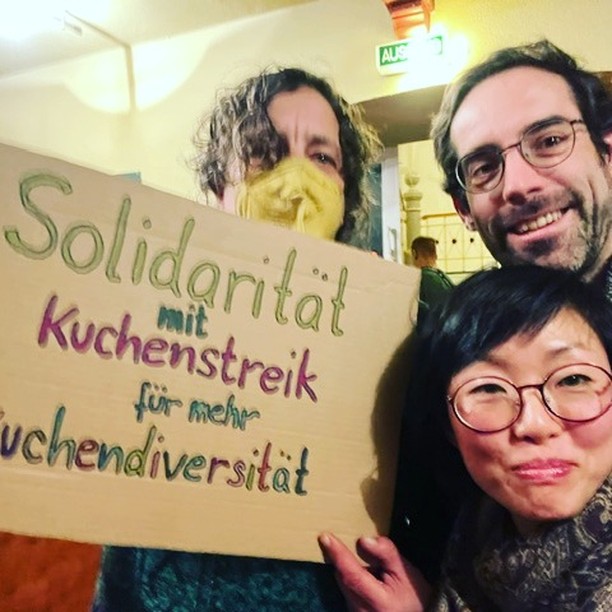 AUS
Solidarität
mit
Kuchenstreik
für mehr
uchendiversität